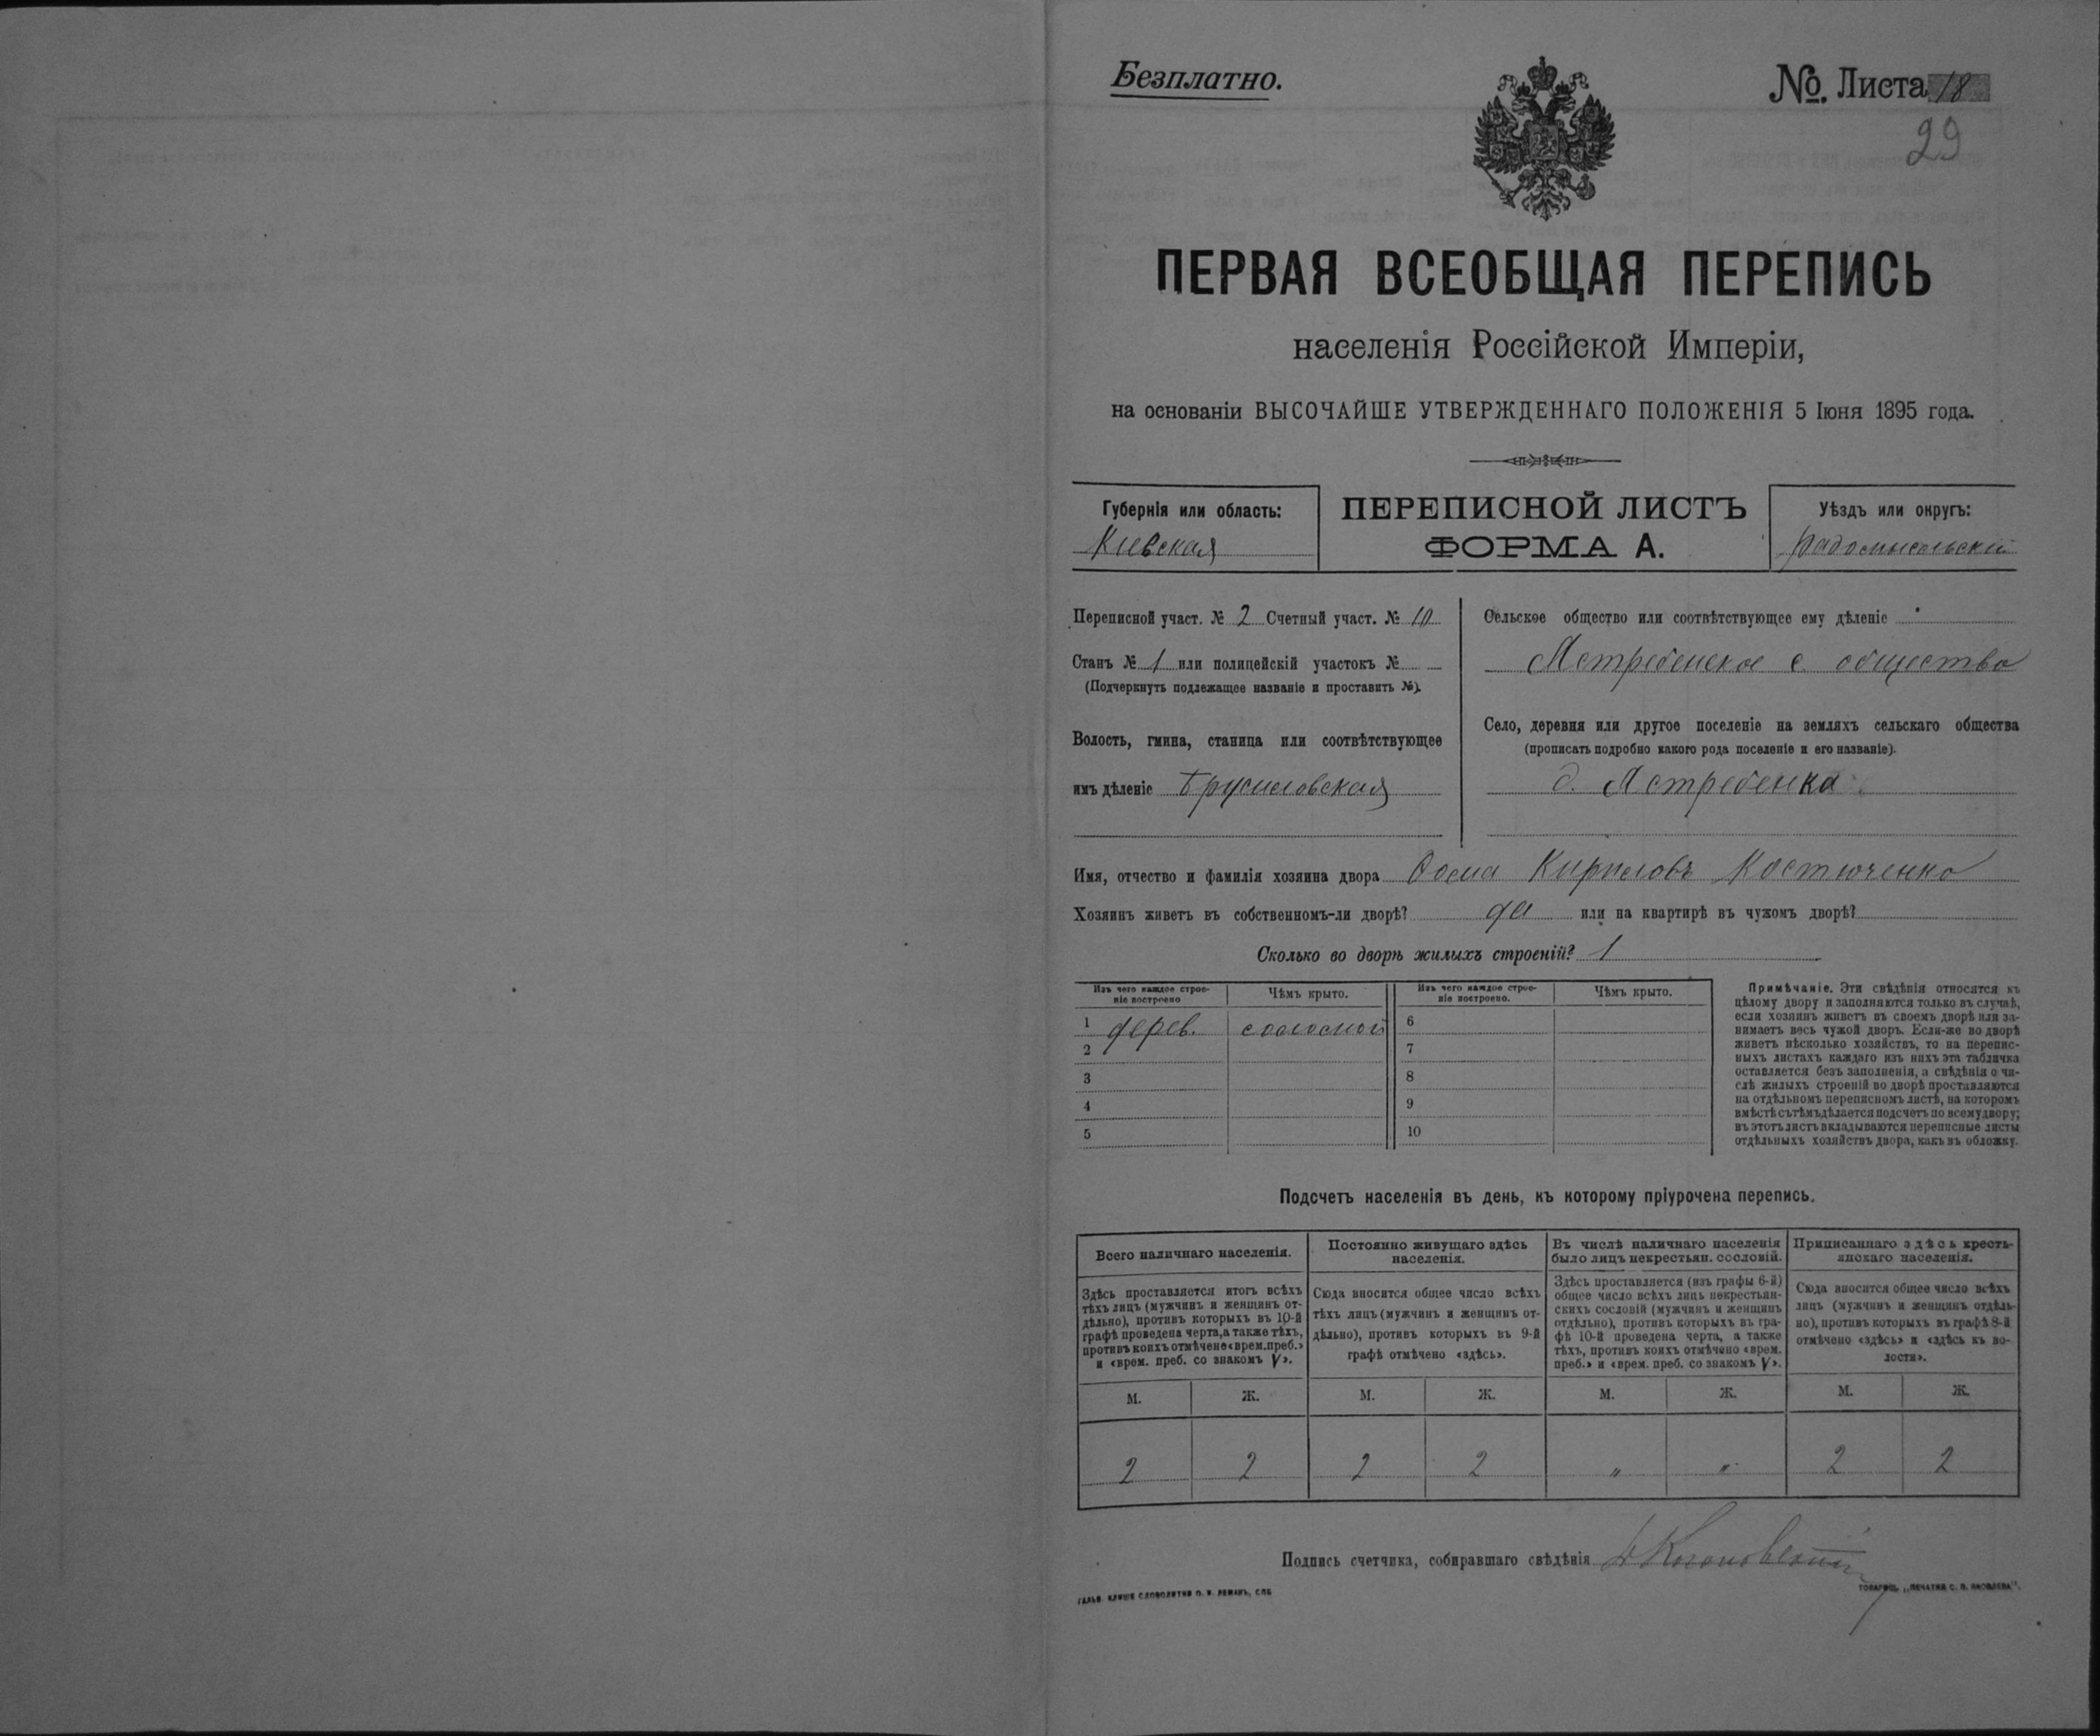 Безплатно.
№. Листа 18
29
ПЕРВАЯ ВСЕОБЩАЯ ПЕРЕПИСЬ
населенія Россійской Имперіи,
на основаніи ВЫСОЧАЙШЕ УТВЕРЖДЕННАГО ПОЛОЖЕНІЯ 5 Іюня 1895 года.
Губернія или область:
Киевская
ПЕРЕПИСНОЙ ЛИСТЪ
ФОРМА А.
Уѣздъ или округъ:
Радомысльскій
Переписной участ. № 2 Счетный участ. № 10
Станъ № 1 или полицейскій участокъ №
(Подчеркнуть подлежащее названіе и проставить №).
Волость, гмина, станица или соотвѣтствующее
имъ дѣленіе Брусиловская
Сельское общество или соотвѣтствующее ему дѣленіе
Ястребенское с. общество
Село, деревня или другое поселеніе на земляхъ сельскаго общества
(прописать подробно какого рода поселеніе и его названіе).
д. Ястребенка
Имя, отчество и фамилія хозяина двора Кириловъ Костюченко
Хозяинъ живетъ въ собственномъ-ли дворѣ? да или на квартирѣ въ чужомъ дворѣ?
Сколько во дворѣ жилыхъ строеній? 1
Изъ чего каждое строе-
ніе построено
Чѣмъ крыто.
Изъ чего каждое строе-
ніе построено.
Чѣмъ крыто.
1 дерев. соломой 6
2 7
3 8
4 9
5 10
Примѣчаніе. Эти свѣдѣнія относятся къ
цѣлому двору и заполняются только въ случаѣ,
если хозяинъ живетъ въ своемъ дворѣ или за-
нимаетъ весь чужой дворъ. Если-же во дворѣ
живетъ нѣсколько хозяйствъ, то на перепис-
ныхъ листахъ каждаго изъ нихъ эта табличка
оставляется безъ заполненія, а свѣдѣнія о чи-
слѣ жилыхъ строеній во дворѣ проставляются
на отдѣльномъ переписномъ листѣ, на которомъ
вмѣстѣ съ тѣмъ дѣлается подсчетъ по всему двору;
въ этотъ листъ вкладываются переписные листы
отдѣльныхъ хозяйствъ двора, какъ въ обложку.
Подсчетъ населенія въ день, къ которому пріурочена перепись.
Всего наличнаго населенія.
Здѣсь проставляется итогъ всѣхъ
тѣхъ лицъ (мужчинъ и женщинъ от-
дѣльно), противъ которыхъ въ 10-й
графѣ проведена черта, а также тѣхъ,
противъ коихъ отмѣчено «врем. преб.»
и «врем. преб. со знакомъ V».
Постоянно живущаго здѣсь
населенія.
Сюда вносится общее число всѣхъ
тѣхъ лицъ (мужчинъ и женщинъ от-
дѣльно), противъ которыхъ въ 9-й
графѣ отмѣчено «здѣсь».
Въ числѣ наличнаго населенія
было лицъ некрестьян. сословій.
Здѣсь проставляется (изъ графы 6-й)
общее число всѣхъ лицъ некрестьян-
скихъ сословій (мужчинъ и женщинъ
отдѣльно), противъ которыхъ въ гра-
фѣ 10-й проведена черта, а также
тѣхъ, противъ коихъ отмѣчено «врем.
преб.» и «врем. преб. со знакомъ V».
Приписаннаго здѣсь кресть-
янскаго населенія.
Сюда вносится общее число всѣхъ
лицъ (мужчинъ и женщинъ отдѣль-
но), противъ которыхъ въ графѣ 8-й
отмѣчено «здѣсь» и «здѣсь къ во-
лости».
М. Ж. М. Ж. М. Ж. М. Ж.
2 2 2 2 " " 2 2
Подпись счетчика, собиравшаго свѣдѣнія
ГАЛЬВ. КЛИШЕ СЛОВОЛИТНИ О. И. ЛЕМАНЪ, СПБ
ТОВАРИЩ. „ПЕЧАТНЯ С. П. ЯКОВЛЕВА".